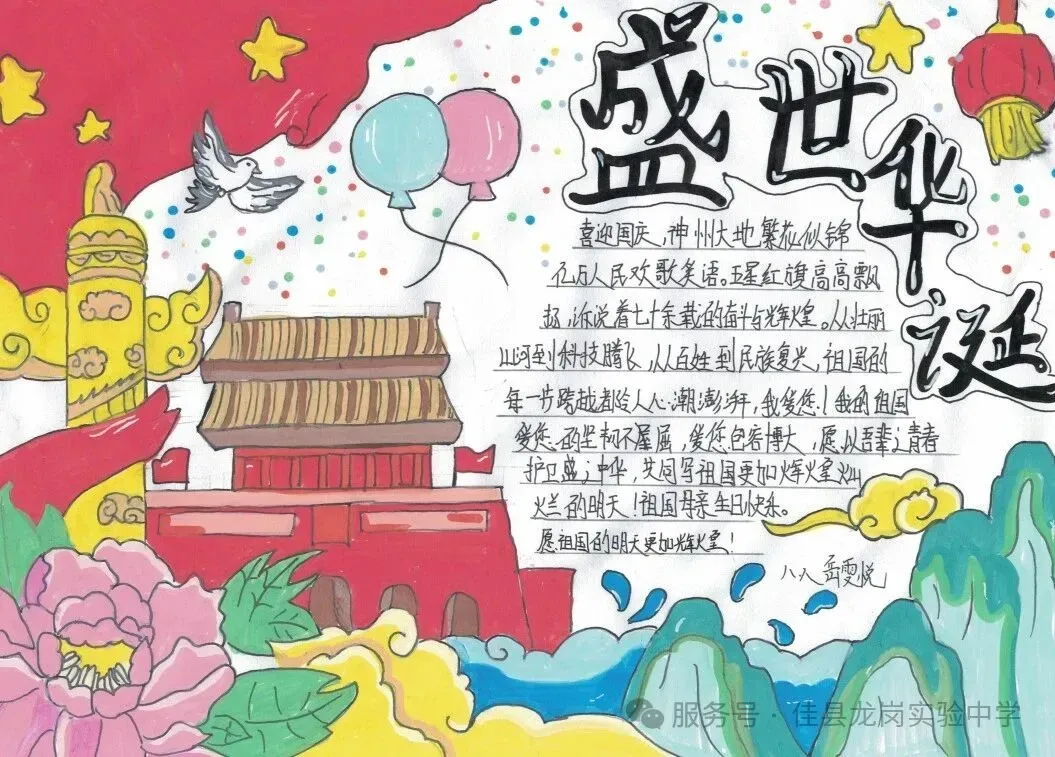 盛世华诞
喜迎国庆,神州大地繁花似锦
亿万人民欢歌笑语。五星红旗高高飘
扬,诉说着七十余载的奋斗与辉煌。从壮丽
山河到科技腾飞,从百姓到民族复兴,祖国的
每一步跨越都令人心潮澎湃,我爱您!我的祖国
爱您的坚韧不屈,爱您包容博大,愿以吾辈之青春
护卫盛之中华,共同写祖国更加辉煌灿
烂的明天!祖国母亲生日快乐。
愿祖国的明天更加辉煌!
八八 岳雯悦
服务号·佳县龙岗实验中学